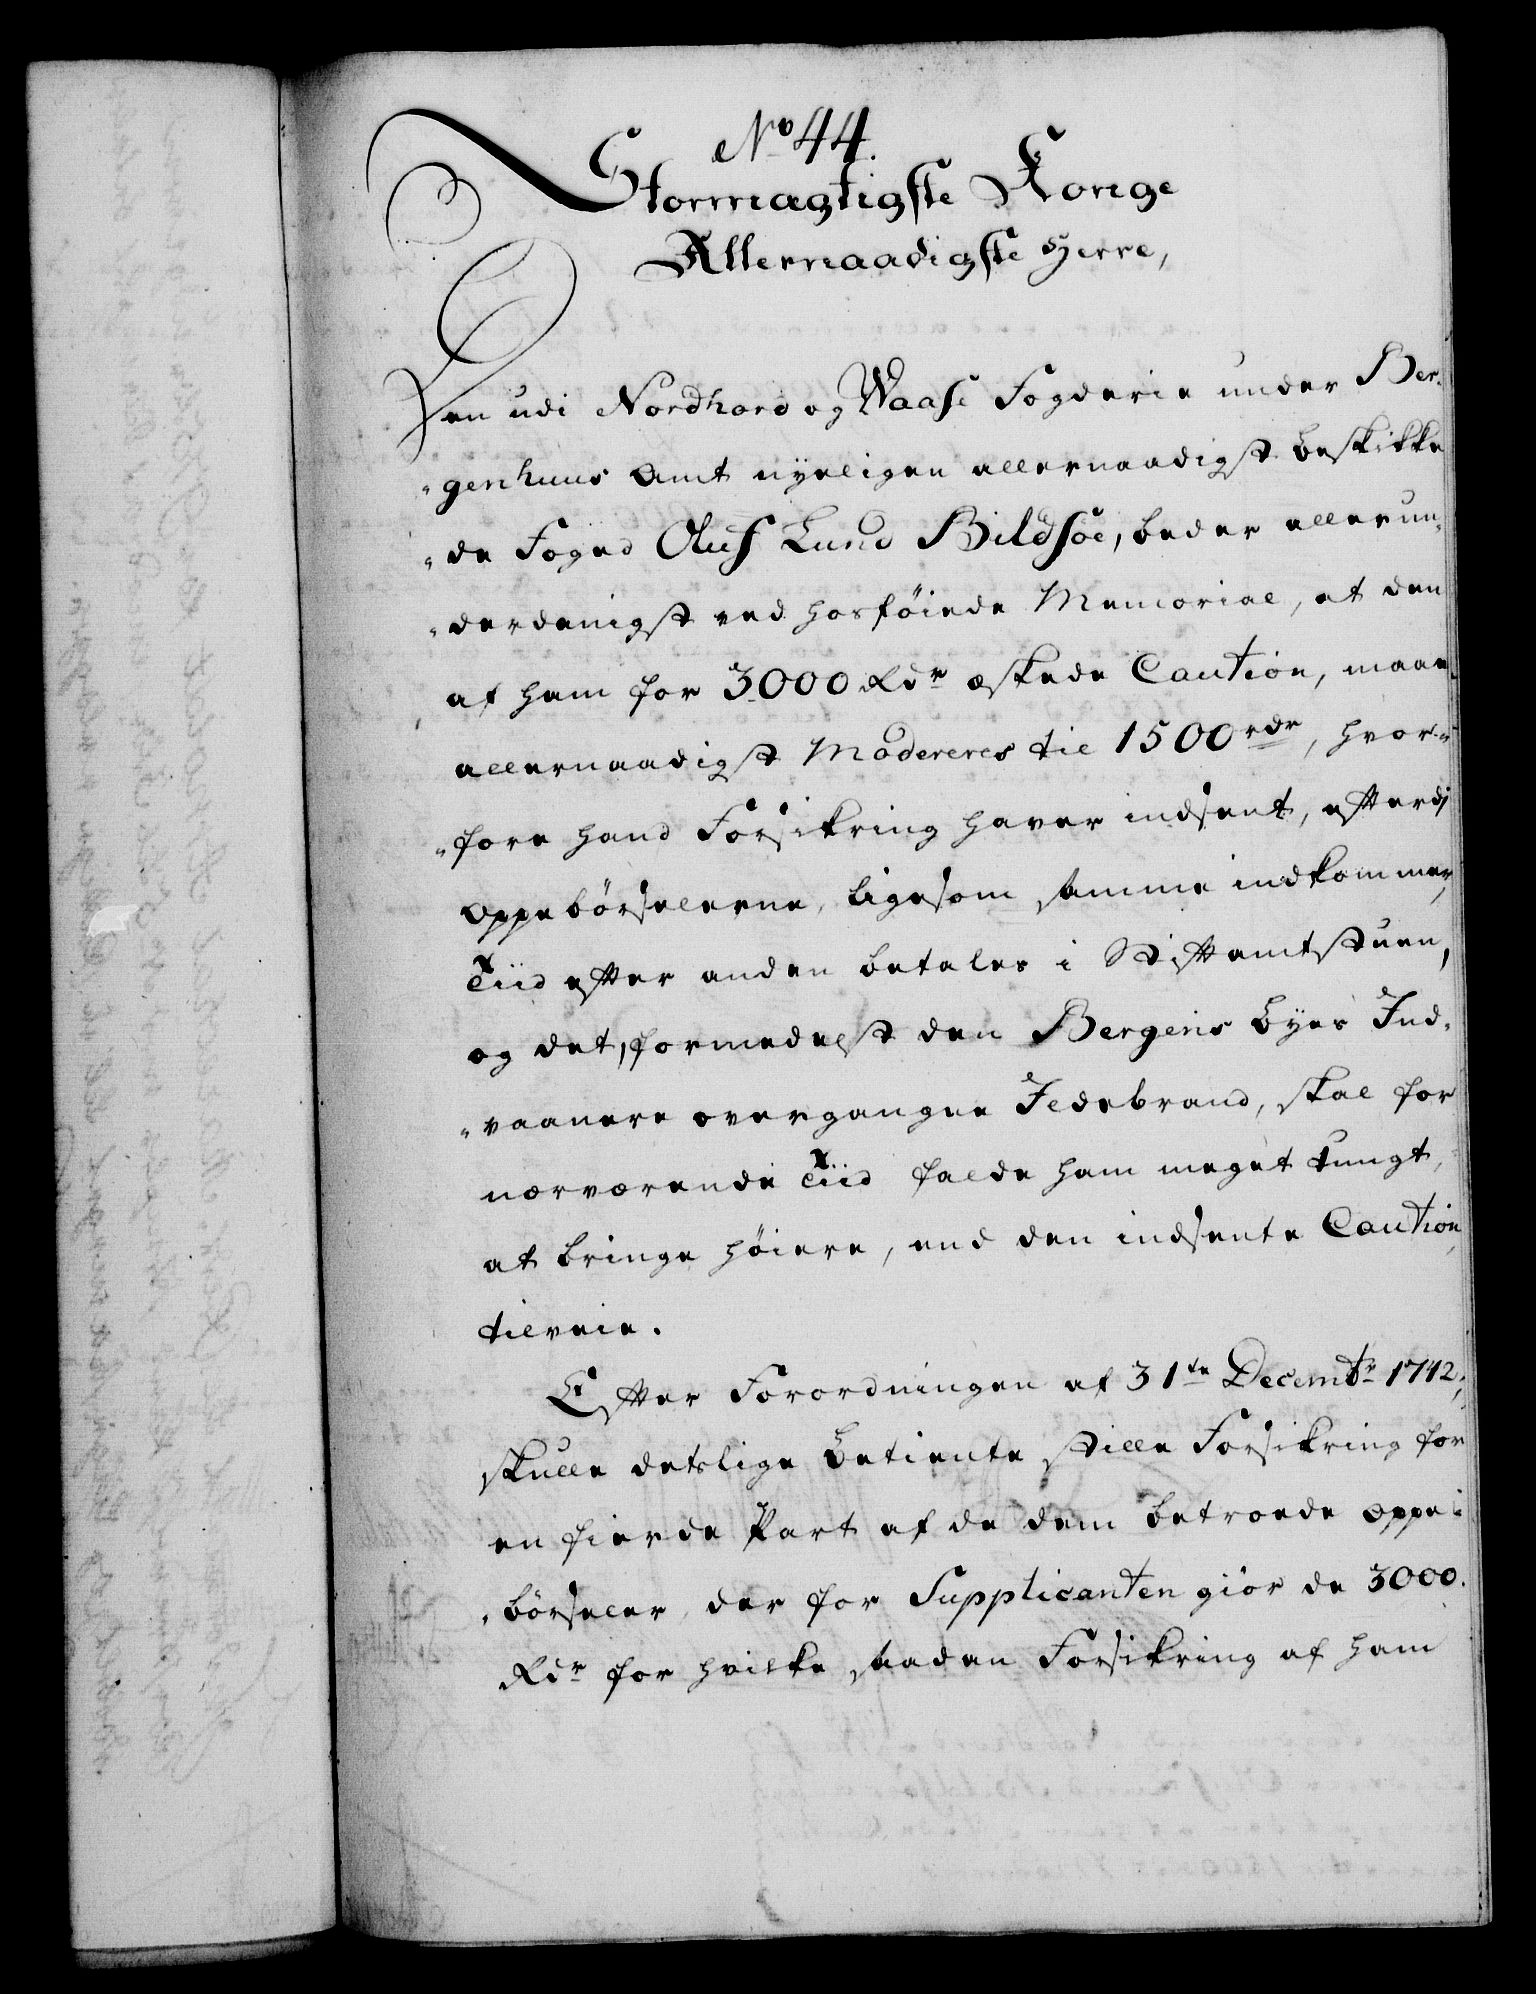 No 44.
Stormagtigste Konge
Allernaadigste Herre,
Den udi Nordhord og Waase Fogderie under Ber-
-genhuus Amt nyeligen allernaadigst beskikke
-de Foged Oluf Lund Bildsøe, beder allerun-
-derdanigst ved hosføiede Memorial, at den
af ham for 3000 Rdr æskede Caution, maae
allernaadigst Modereres til 1500 rdr, hvor-
-fore hand Forsikring haver indsent, efterdi
Oppebørselerne, ligesom samme indkommer,
Tiid efter anden betales i Stiftamtstuen,
og det, formedelst den Bergens Byes Ind-
-vaanere overgangne Ildebrand, skal for
nærværende Tiid falde ham meget tungt,
at bringe høiere, end den indsente Caution
tilveie.
Efter Forordningen af 31te Decembr 1742,
skulle detslige Betiente stille Forsikring for
en fierde Part af de dem betroede Oppe-
-børseler, der for Supplicanten giør de 3000.
Rdr for hvilke saadan Forsikring af ham